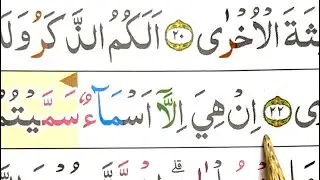 ثَةَ الْاُخْرٰى ٢٠ اَلَكُمُ الذَّكَرُ وَلَـ
ى ٢٢ اِنْ هِيَ اِلَّاۤ اَسْمَآءٌ سَمَّيْتُمُـ